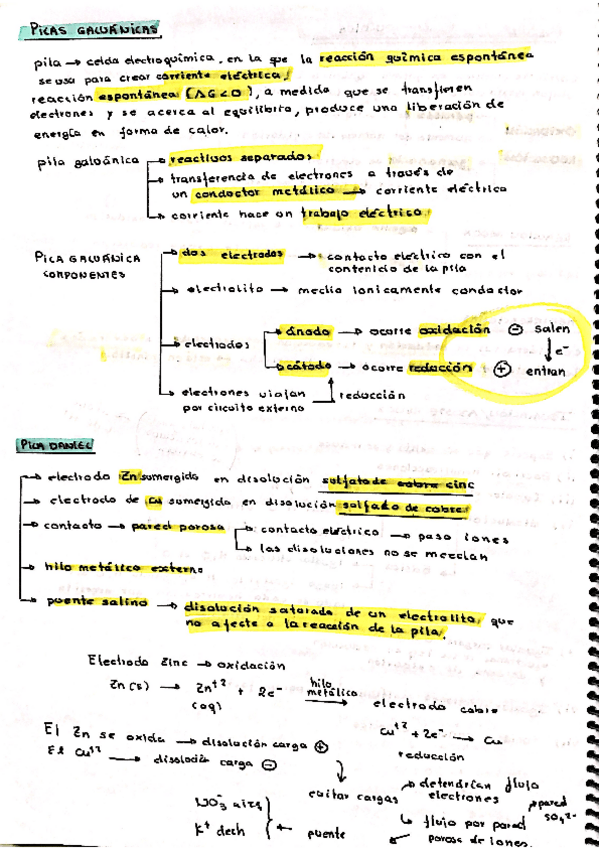 PILAS GALVÁNICAS
pila → celda electroquímica, en la que la reacción química espontánea
se usa para crear corriente eléctrica.
reacción espontánea (ΔG<0), a medida que se transfieren
electrones y se acerca al equilibrio, produce una liberación de
energía en forma de calor.
pila galvánica → reactivos separados
→ transferencia de electrones a través de
un conductor metálico → corriente eléctrica
→ corriente hace un trabajo eléctrico.
PILA GALVÁNICA
COMPONENTES
→ dos electrodos → contacto eléctrico con el
contenido de la pila
→ electrolito → medio ionicamente conductor
→ electrodos
→ ánodo → ocurre oxidación ⊖ salen
↓ e⁻
→ cátodo → ocurre reducción ⊕ entran
→ electrones viajan
por circuito externo
reducción
PILA DANIEL
→ electrodo Zn sumergido en disolución sulfato de cobre cinc
→ electrodo de Cu sumergido en disolución sulfato de cobre.
→ contacto → pared porosa → contacto eléctrico → paso iones
→ las disoluciones no se mezclan
→ hilo metálico externo
→ puente salino → disolución saturada de un electrolito, que
no afecte a la reacción de la pila.
Electrodo Zinc → oxidación
Zn(s) → Zn⁺² + 2e⁻ hilo metálico → electrodo cobre
(aq)
Cu⁺² + 2e⁻ → Cu
reducción
El Zn se oxida → disolución carga ⊕
El Cu⁺² → disolución carga ⊖
evitar cargas
→ detendrían flujo
electrones
→ flujo por pared
porosa de iones.
pared
SO₄²⁻
NO₃⁻ izq
K⁺ dech
← puente